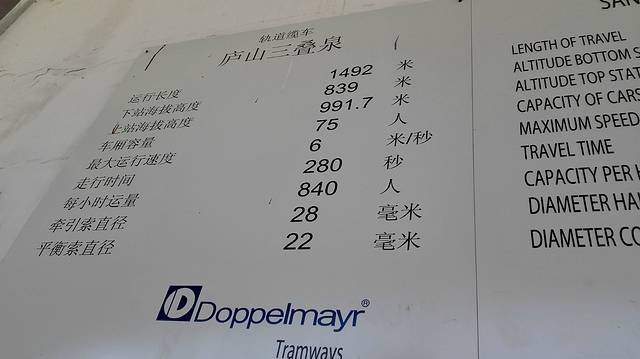 轨道缆车
庐山三叠泉
运行长度 1492 米
下站海拔高度 839 米
上站海拔高度 991.7 米
车厢容量 75 人
最大运行速度 6 米/秒
走行时间 280 秒
每小时运量 840 人
牵引索直径 28 毫米
平衡索直径 22 毫米
Doppelmayr®
Tramways
SAN
LENGTH OF TRAVEL
ALTITUDE BOTTOM S
ALTITUDE TOP STAT
CAPACITY OF CARS
MAXIMUM SPEED
TRAVEL TIME
CAPACITY PER H
DIAMETER HA
DIAMETER CO